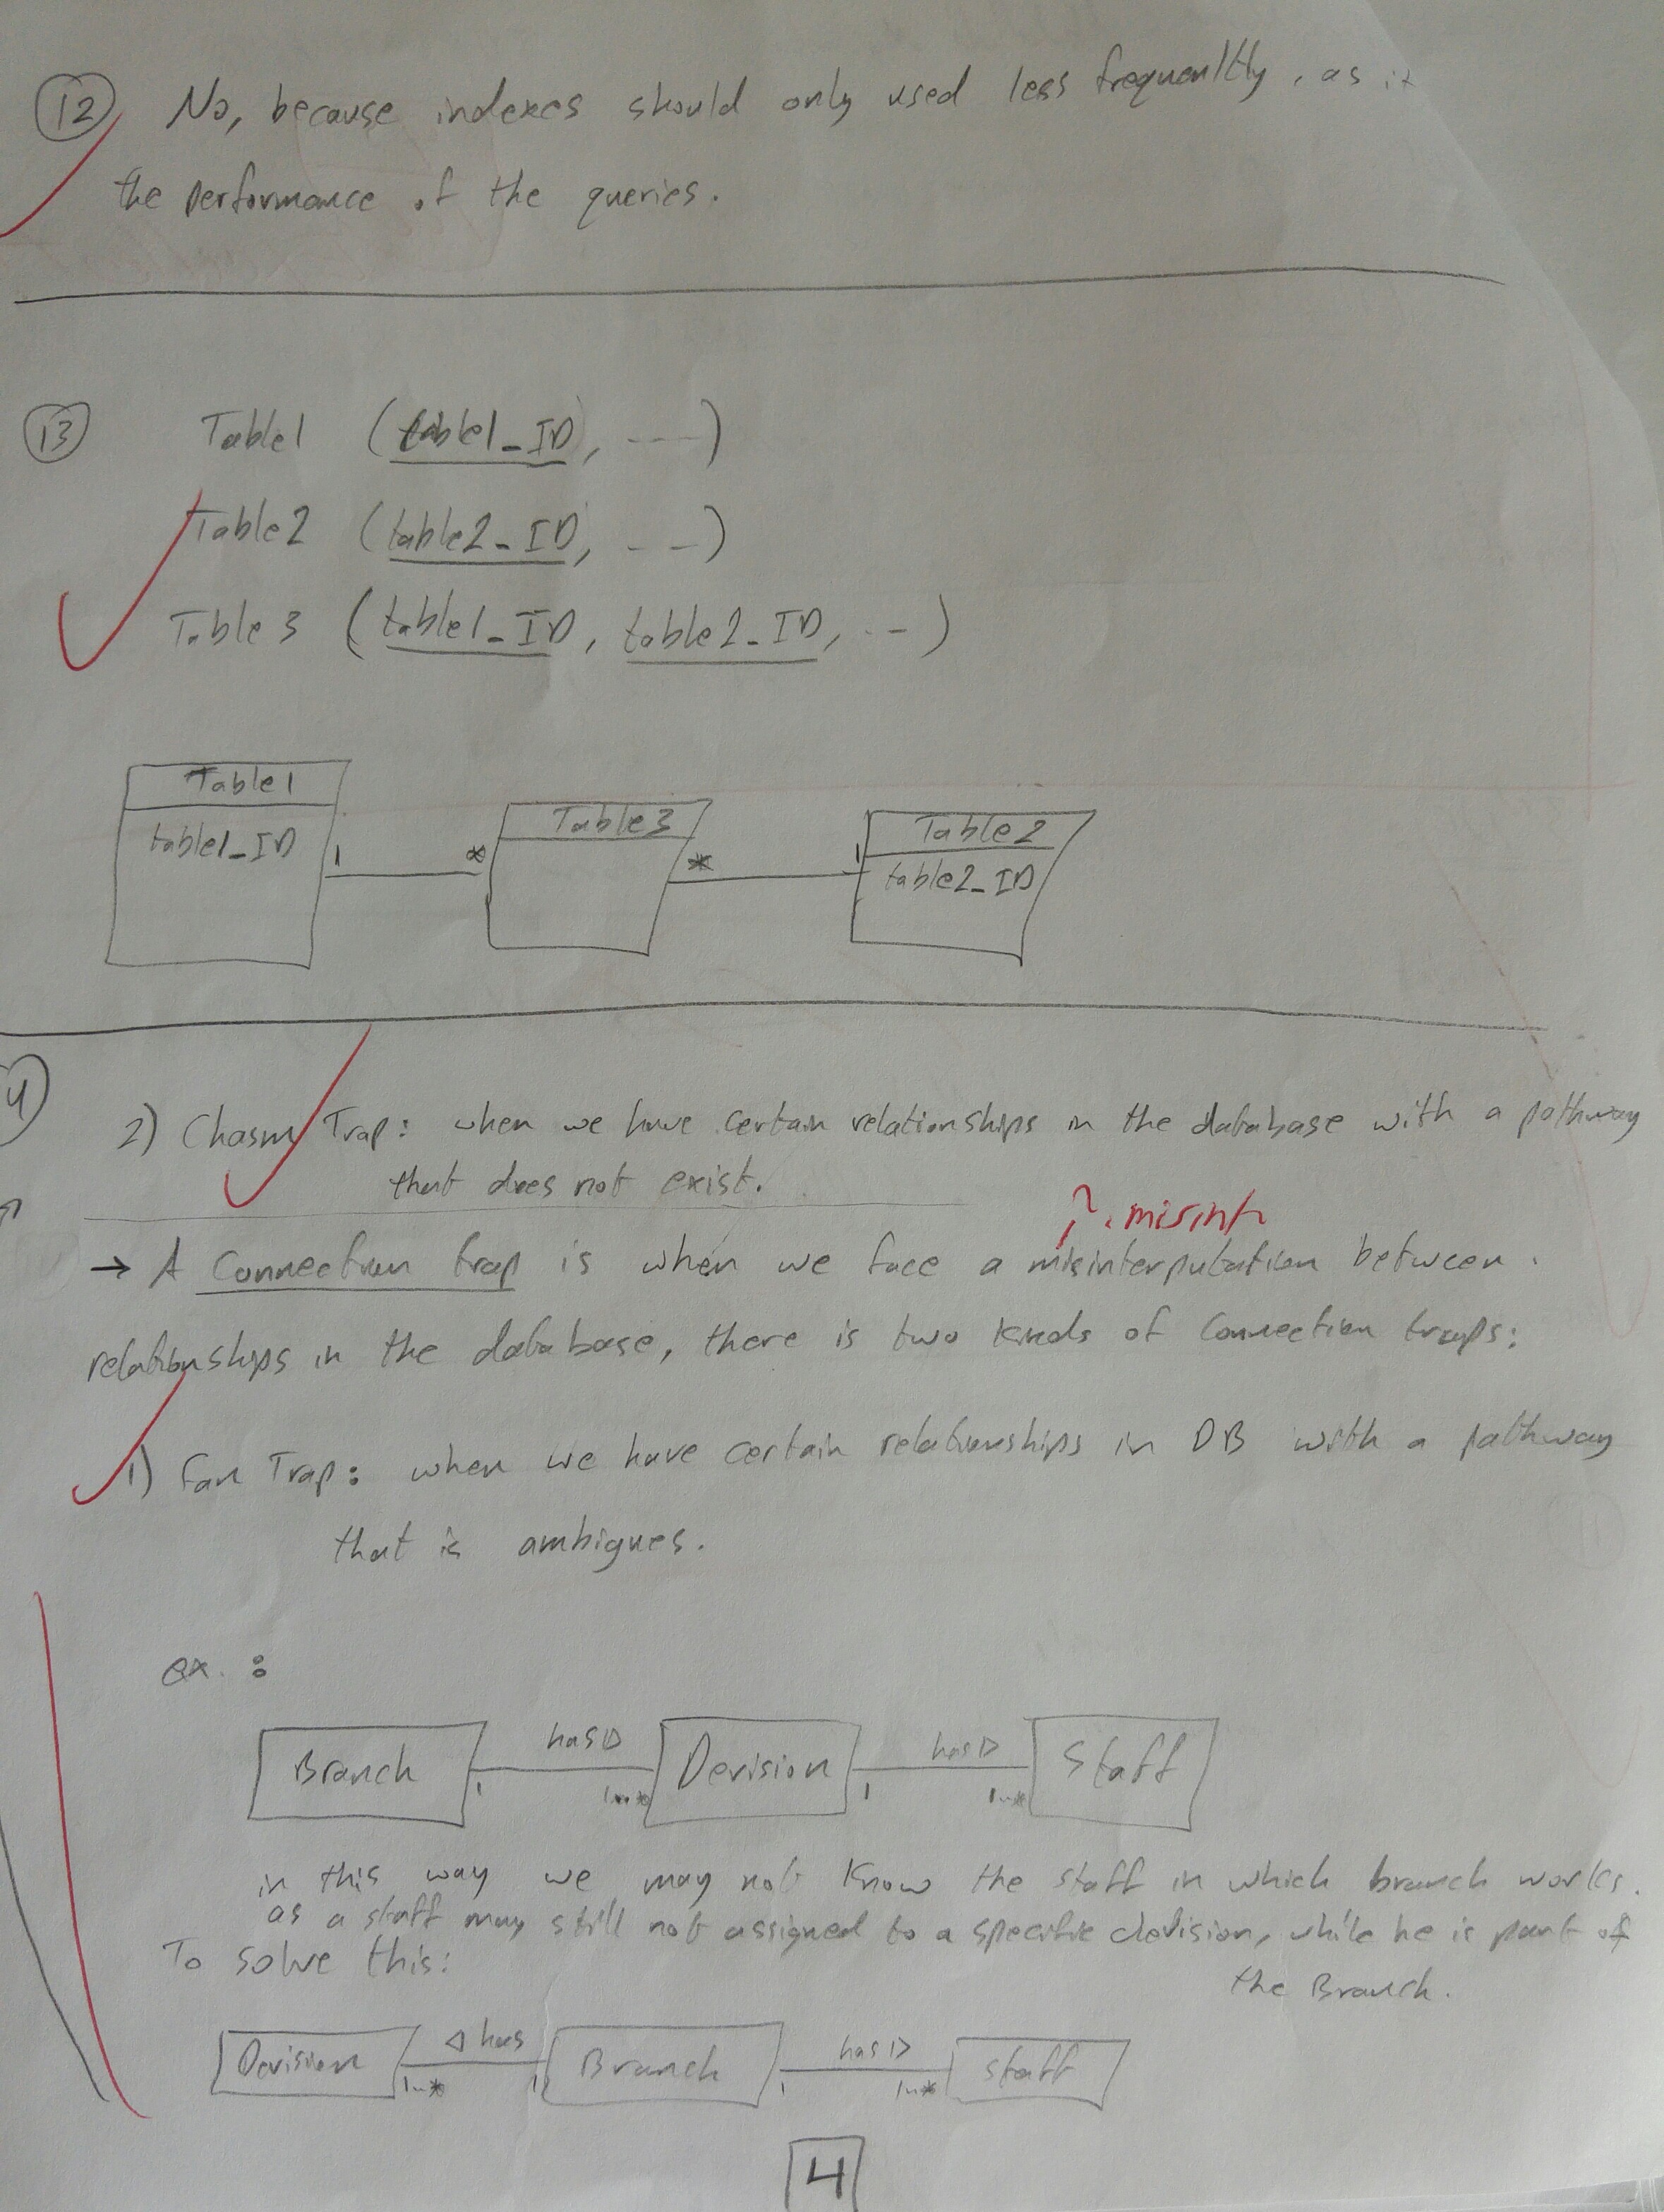 12 No, because indexes should only used less frequenltly, as it
the performance of the queries.
13 Table1 (table1_ID, ----)
Table2 (table2_ID, - --)
Table3 (table1_ID, table2_ID, -- -)
Table1
table1_ID
1 *
Table3
* 1
Table2
table2_ID
4
2) Chasm Trap: when we have certain relationships in the database with a pathway
that does not exist.
?. misint
→ A Connection trap is when we face a misinterputation between
relationships in the database, there is two kinds of Connection traps:
1) Fan Trap: when we have certain relationships in DB with a pathway
that is ambigues.
ex. :
Branch has ▷ Devision has ▷ Staff
1 1..* 1 1..*
in this way we may not know the staff in which branch works.
as a staff may still not assigned to a specific devision, while he is part of
the Branch.
To solve this:
Devision ◁ has Branch has ▷ staff
1..* 1 1 1..*
4